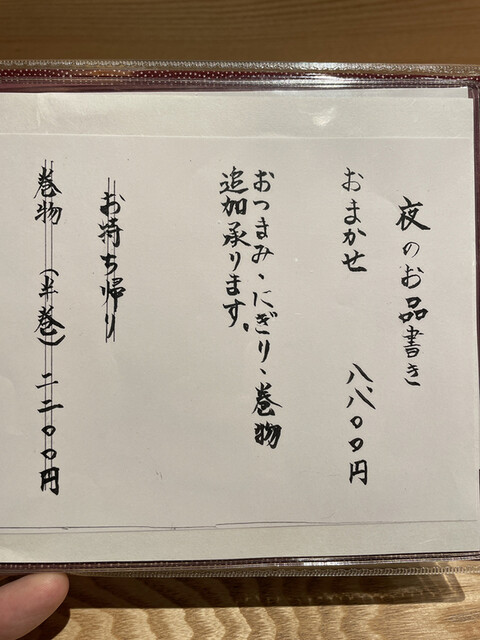 夜のお品書き
おまかせ 八、八〇〇円
おつまみ・にぎり・巻物
追加承ります。
お持ち帰り
巻物 (半巻) 二二〇〇円